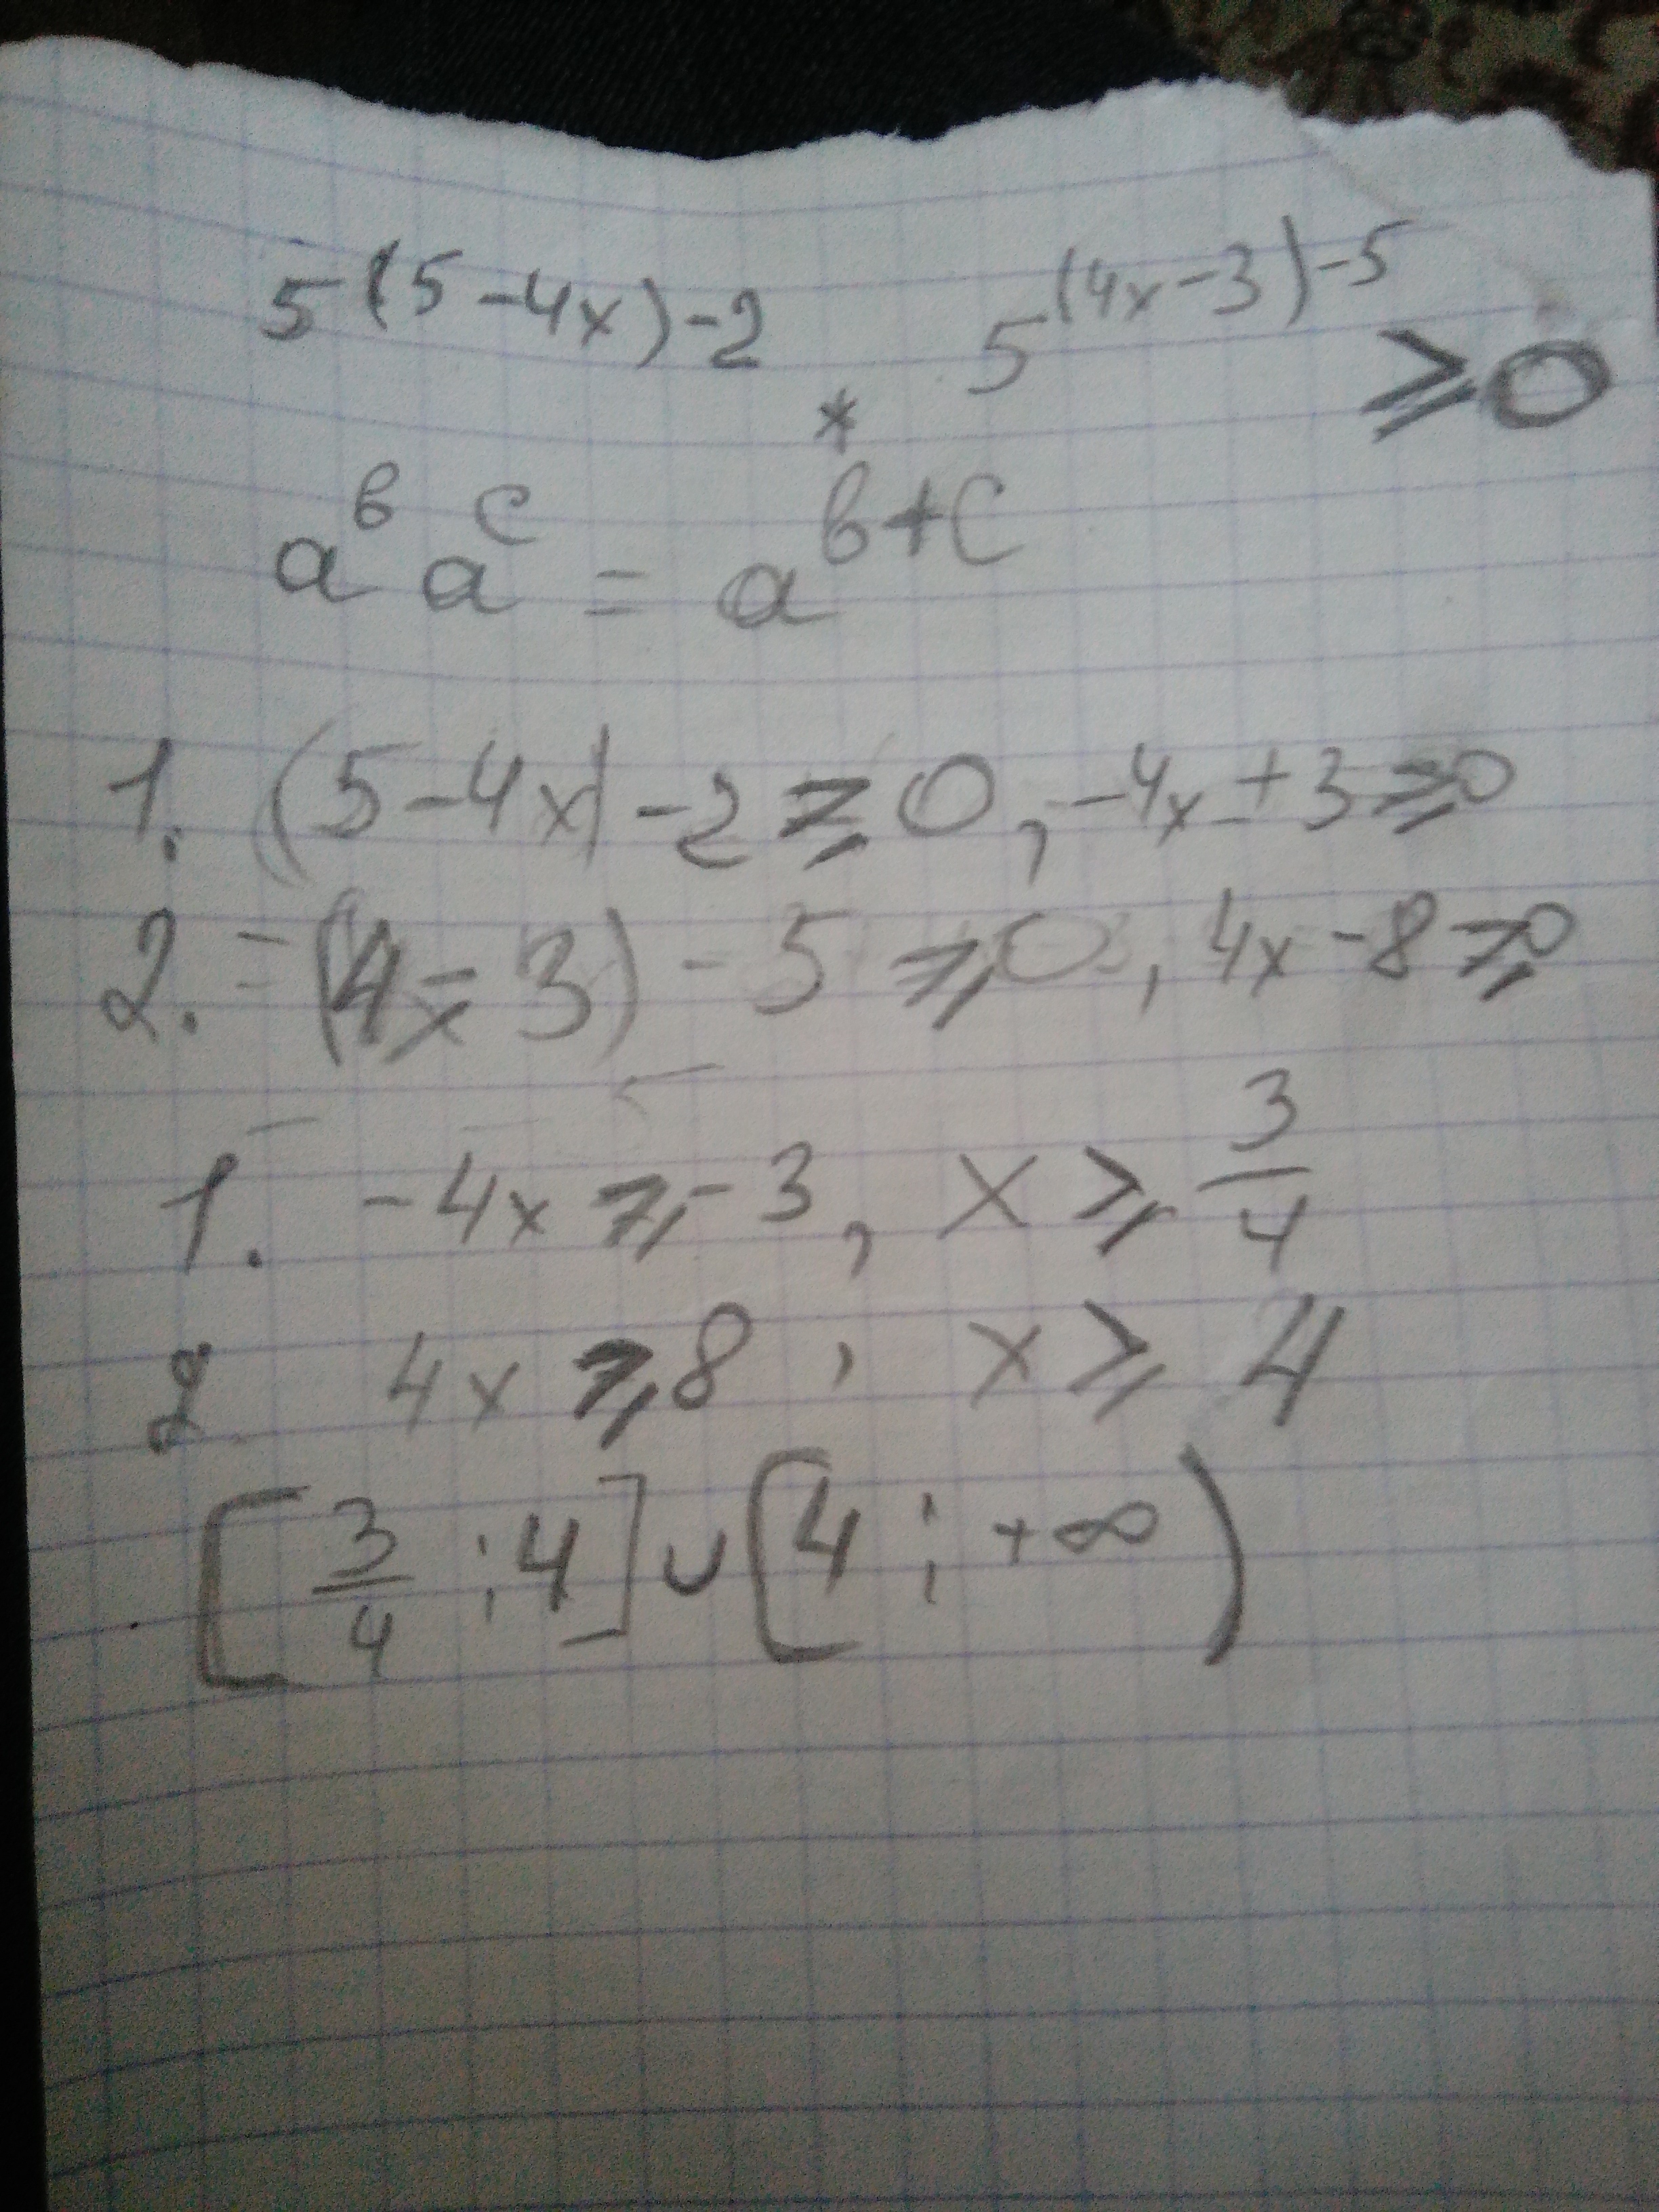 5^(5-4x)-2 * 5^(4x-3)-5 ≥ 0
a^b a^c = a^b+c
1. (5-4x)-2 ≥ 0, -4x+3 ≥ 0
2. = (4x-3)-5 ≥ 0, 4x-8 ≥ 0
1. -4x ≥ -3, x ≥ 3/4
2 4x ≥ 8, x ≥ 4
[3/4 ; 4] ∪ [4 ; +∞)